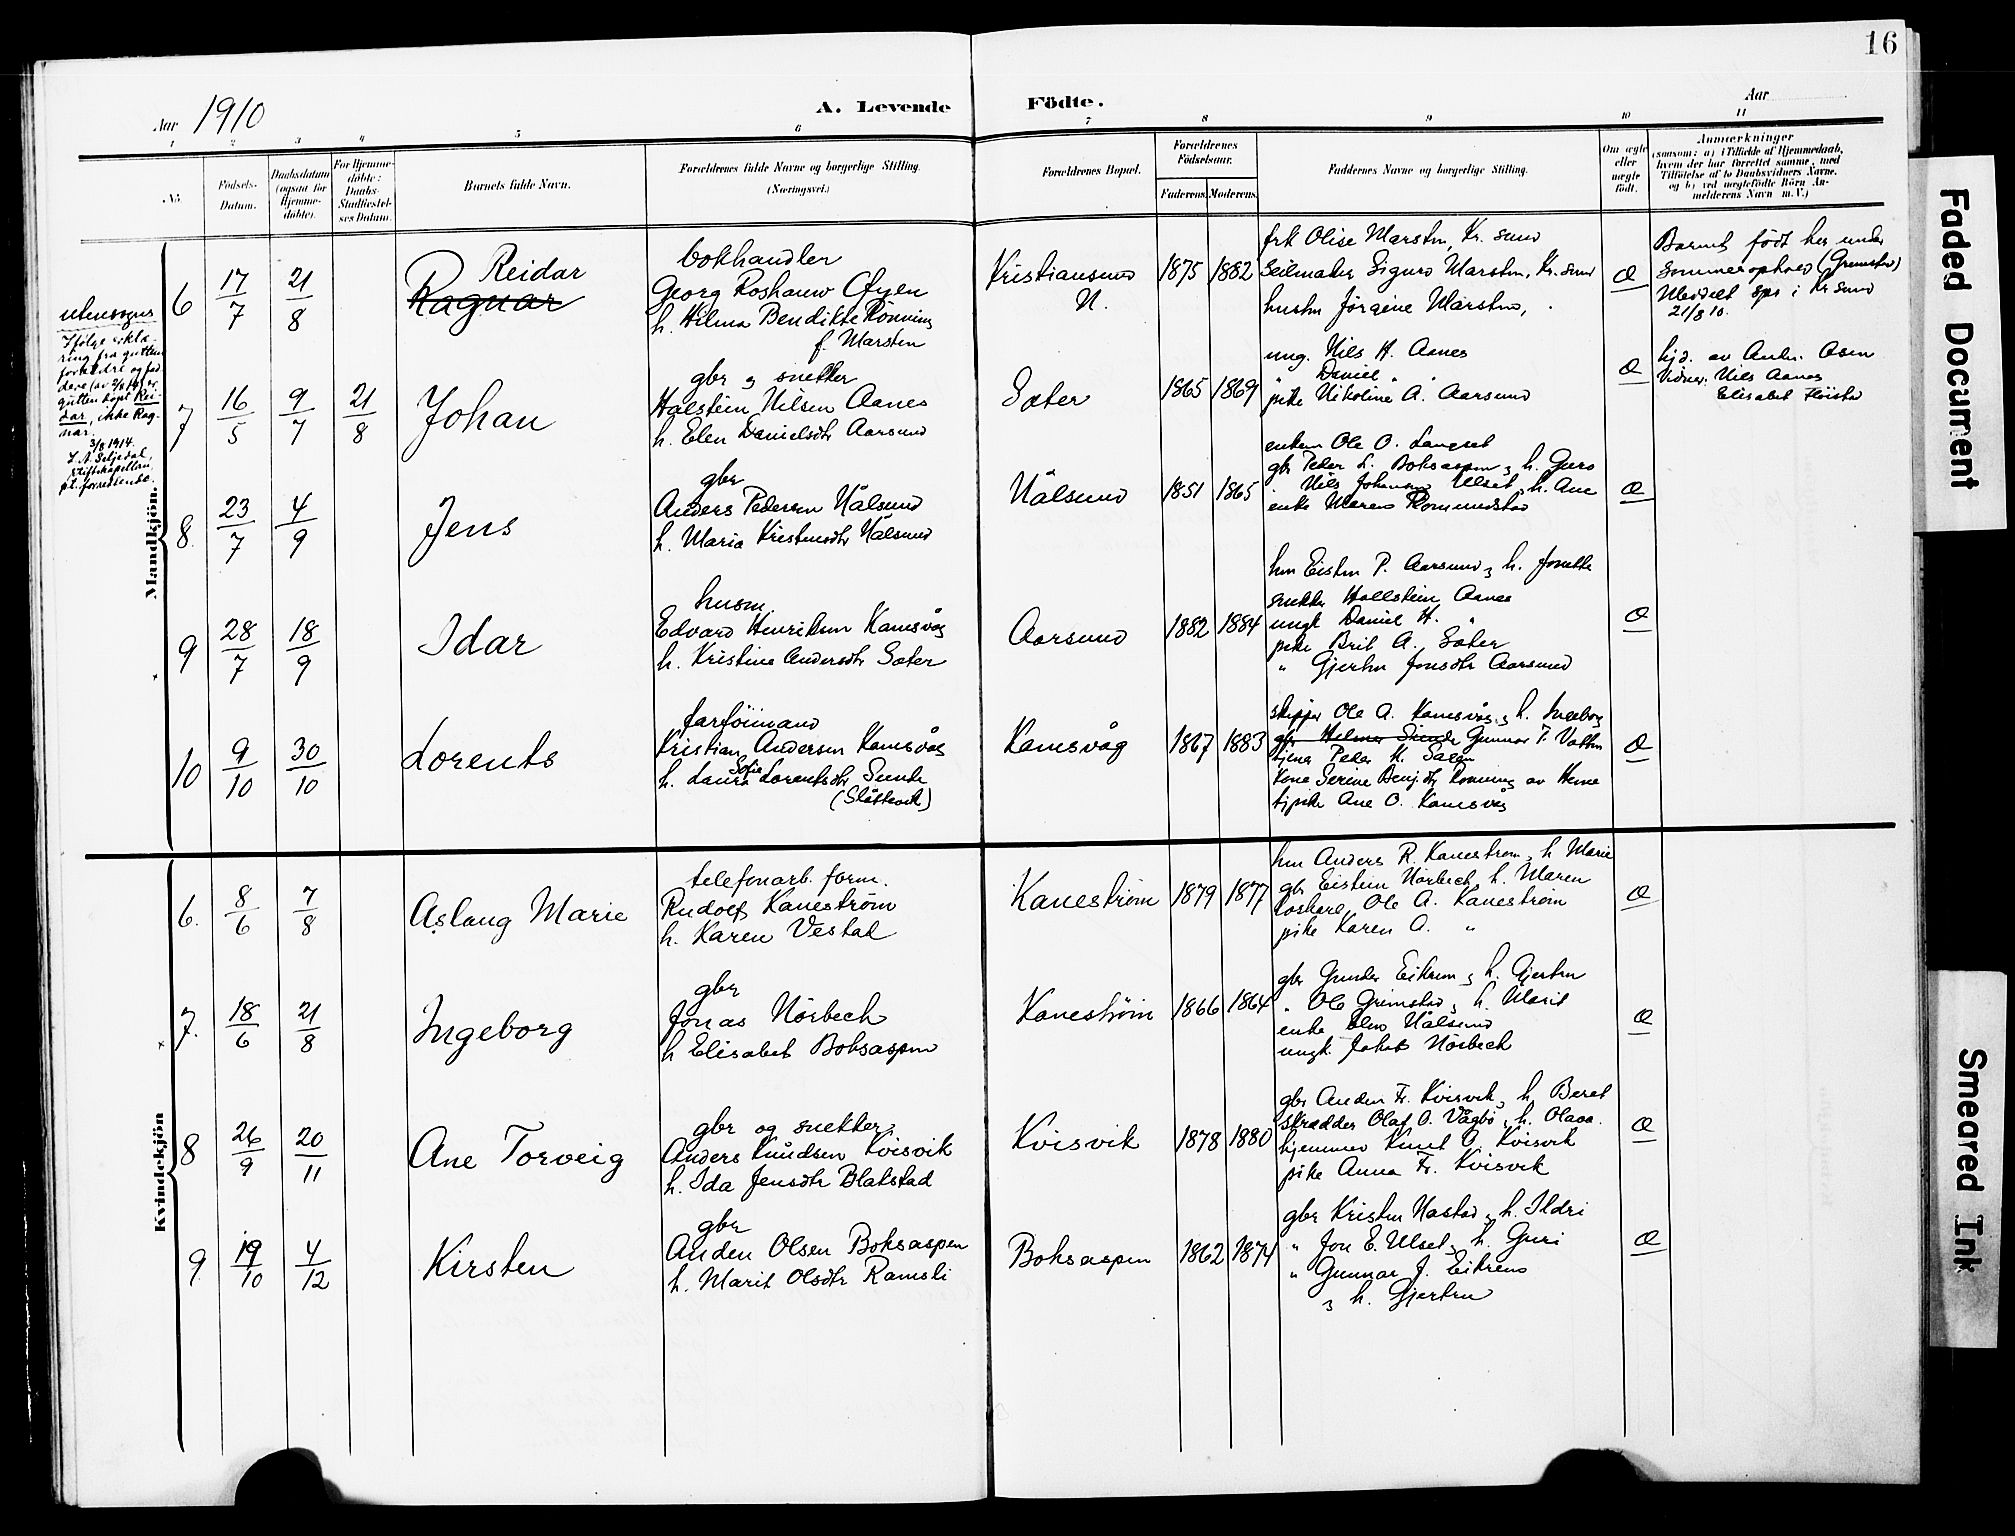 16
Aar 1910
A. Levende Födte.
Aar
1 2 3 4 5 6 7 8 9 10 11
No.
Födsels-Datum.
Daabsdatum (ogsaa for Hjemme-döbte).
For Hjemme-döbte: Daabs-Stadfæstel-ses Datum.
Barnets fulde Navn.
Forældrenes fulde Navne og borgerlige Stilling. (Næringsvei.)
Forældrenes Bopæl.
Forældrenes Födselsaar.
Faderens. Moderens.
Faddernes Navne og borgerlige Stilling.
Om ægte eller uægte födt.
Anmærkninger
(saasom: a) i Tilfælde af Hjemmedaab, hvem der har forrettet samme, med Tilföielse af to Daabsvidners Navne, og b) ved uægtefödte Börn An-melderens Navn m. V.)
Mandkjön.
utensogns
Ifølge erklæ-
ring fra gutten
forældre og fad-
dere
gutten døpt Rei-
dar, ikke Rag-
nar.
3/8 1914.
stiftskapellan,
6 17/7 21/8
Reidar
Ragnar
bokhandler
Georg Roshauw Øyen
h. Hilma Bendikte Rönning
f. Marsten
Kristiansund N.
1875 1882
frk Olise Marsten, Kr. sund
Seilmaker Sigurd Marsten, Kr. sund
hustru Jørgine Marsten,
Æ
Barnet født her under
sommerophold (Grimstad)
Meddelt spr i Kr sund
21/8 10.
7 16/5 9/7 21/8
Johan
gbr og snekker
Halstein Nilsen Aanes
h. Elen Danielsdtr Aarsund
Sæter
1865 1869
ung. Nils H. Aanes
" Daniel " "
pike Nikoline A. Aarsund
Æ
hjd. av Andr. Osen
Vidner: Nils Aanes
Elisabet
8 23/7 4/9
Jens
gbr
Anders Pedersen Nålsund
h. Maria Kristensdtr Nålsund
Nålsund
1851 1865
enkem Ole O. Langset
gbr Peder L. Boksaspen og h. Guro
" Nils Johansen Ulset, h. Ane
enke Maren Romundstad
Æ
9 28/7 18/9
Idar
husm.
Edvard Henriksen Kanesvåg
h. Kristine Andersdtr Sæter
Aarsund
1882 1884
hm Eisten P. Aarsund og h. Jonette
snekker Hallstein Aanes
ungk Daniel H. "
pike Brit A. Sæter
" Gjertru Jonsdtr Aarsund
Æ
10 9/10 30/10
Lorents
Kristian Andersen Kanesvåg
h. Laura Sofie Lorentsdtr Sunde
Kanesvåg
1867 1883
skipper Ole A. Kanesvåg og h. Ingeborg
Gunnar T.
tjener Peder K.
Kone Serine Benj.dtr Rönning av Heme
tjpike Ane O. Kanesvåg
Æ
Kvindekjön
6. 8/6 7/8
Aslaug Marie
telefonarb. form.
Rudolf Kaneström
h. Karen Vestad
Kaneström
1879 1877
hm Anders R. Kaneström, h Marie
gbr Eistein Nörbech h. Maren
løskarl Ole A. Kaneström
pike Karen O. "
Æ
7. 18/6 21/8
Ingeborg
gbr
Jonas Nörbech
h Elisabet Boksaspen
Kaneström
1866 1864
gbr Gunder Eikrem og h. Gjertru
" Ole Grimstad, h. Marit
enke Nålsund
ungk. Jakob Nörbech
Æ
8 26/9 20/11
Ane Torveig
gbr og snekker
Anders Knudsen Kvisvik
h. Ida Jensdtr Blakstad
Kvisvik
1878 1880
gbr Anders Fr. Kvisvik, h. Beret
skrædder Olaf O. Vågbö, h. Olava.
hjemmev Knut A. Kvisvik
pike Anna Fr. Kvisvik
Æ
9. 19/10 4/12
Kirsten
gbr
Anders Olsen Boksaspen
h. Marit Olsdtr Ramsli
Boksaspen
1862 1874
gbr Kristen Nastad og h. Ildri
" Jon E. Ulset, h. Guri
" Gunnar J. Eikrem
og h. Gjertru
Æ
Faded Document
Smeared Ink